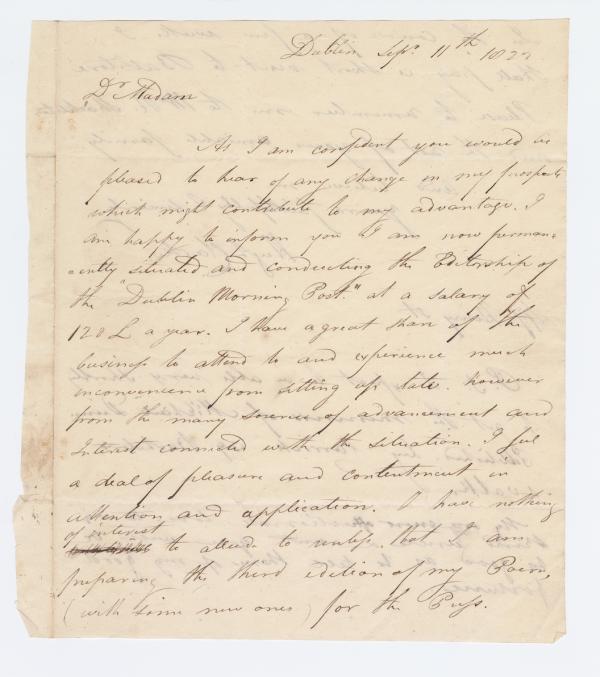 Dublin Sepr. 11th 1822
Dr. Madam
As I am confident you would be
pleased to hear of any change in my prospects
which might contribute to my advantage. I
am happy to inform you I am now perman-
-ently situated and conducting the Editorship of
the "Dublin Morning Post." at a salary of
120 L a year. I have a great share of the
business to attend to and experience much
inconvenience from sitting up late. however
from the many sources of advancement and
Interest connected with the situation. I feel
a deal of pleasure and contentment in
attention and application. I have nothing
of interest
to attend to unless that I am
preparing the third edition of my Poems,
(with some new ones) for the Press.